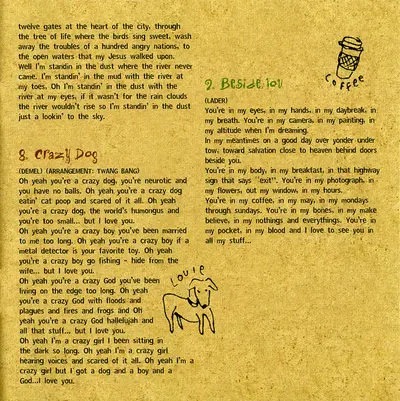 twelve gates at the heart of the city, through
the tree of life where the birds sing sweet, wash
away the troubles of a hundred angry nations, to
the open waters that my Jesus walked upon.
Well I'm standin in the dust where the river never
came. I'm standin' in the mud with the river at
my toes. Oh I'm standin' in the dust with the
river at my eyes, if it wasn't for the rain clouds
the river wouldn't rise so I'm standin' in the dust
just a lookin' to the sky.
8. Crazy Dog
(DEMEL) (ARRANGEMENT: TWANG BANG)
Oh yeah you're a crazy dog, you're neurotic and
you have no balls. Oh yeah you're a crazy dog
eatin' cat poop and scared of it all. Oh yeah
you're a crazy dog, the world's humongus and
you're too small... but I love you.
Oh yeah you're a crazy boy you've been married
to me too long. Oh yeah you're a crazy boy if a
metal detector is your favorite toy. Oh yeah
you're a crazy boy go fishing ~ hide from the
wife... but I love you.
Oh yeah you're a crazy God you've been
living on the edge too long. Oh yeah
you're a crazy God with floods and
plagues and fires and frogs and Oh
yeah you're a crazy God hallelujah and
all that stuff... but I love you.
Oh yeah I'm a crazy girl I been sitting in
the dark so long. Oh yeah I'm a crazy girl
hearing voices and scared of it all. Oh yeah I'm a
crazy girl but I got a dog and a boy and a
God...I love you.
LOUIE
COFFEE
9. Beside you
(LADER)
You're in my eyes, in my hands, in my daybreak, in
my breath. You're in my camera, in my painting, in
my altitude when I'm dreaming.
In my meantimes on a good day over yonder under
tow, toward salvation close to heaven behind doors
beside you.
You're in my body, in my breakfast, in that highway
sign that says "exit". You're in my photograph, in my
flowers, out my window, in my hours.
You're in my coffee, in my may, in my mondays
through sundays. You're in my bones, in my make
believe, in my nothings and everythings. You're in
my pocket, in my blood and I love to see you in
all my stuff...